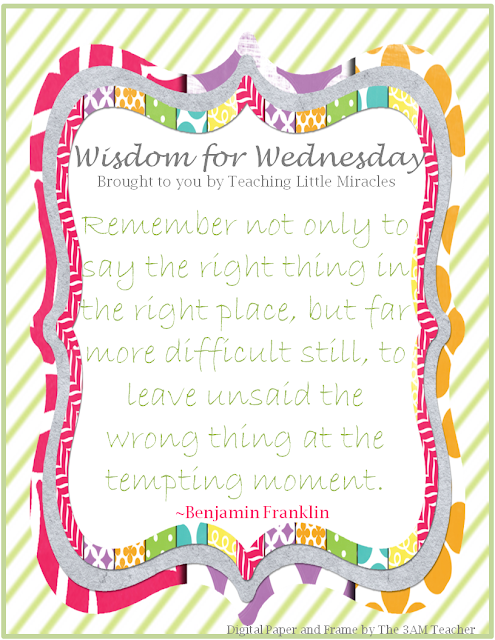 Wisdom for Wednesday
Brought to you by Teaching Little Miracles
Remember not only to
say the right thing in
the right place, but far
more difficult still, to
leave unsaid the
wrong thing at the
tempting moment.
~Benjamin Franklin
Digital Paper and Frame by The 3AM Teacher